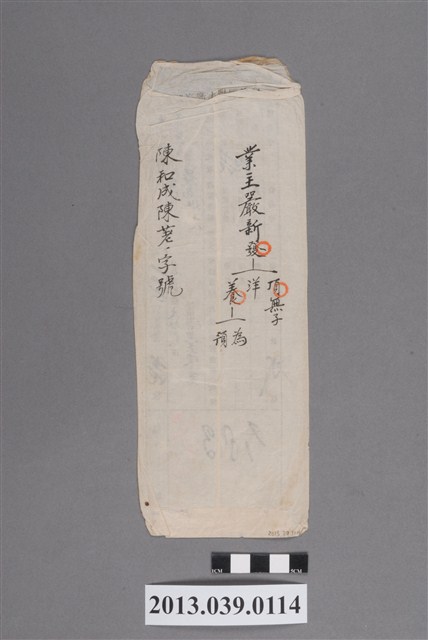 業主嚴新發
頂無子
洋
養
為
陳和成陳荖、字號
CM
CM
2013.039.0114